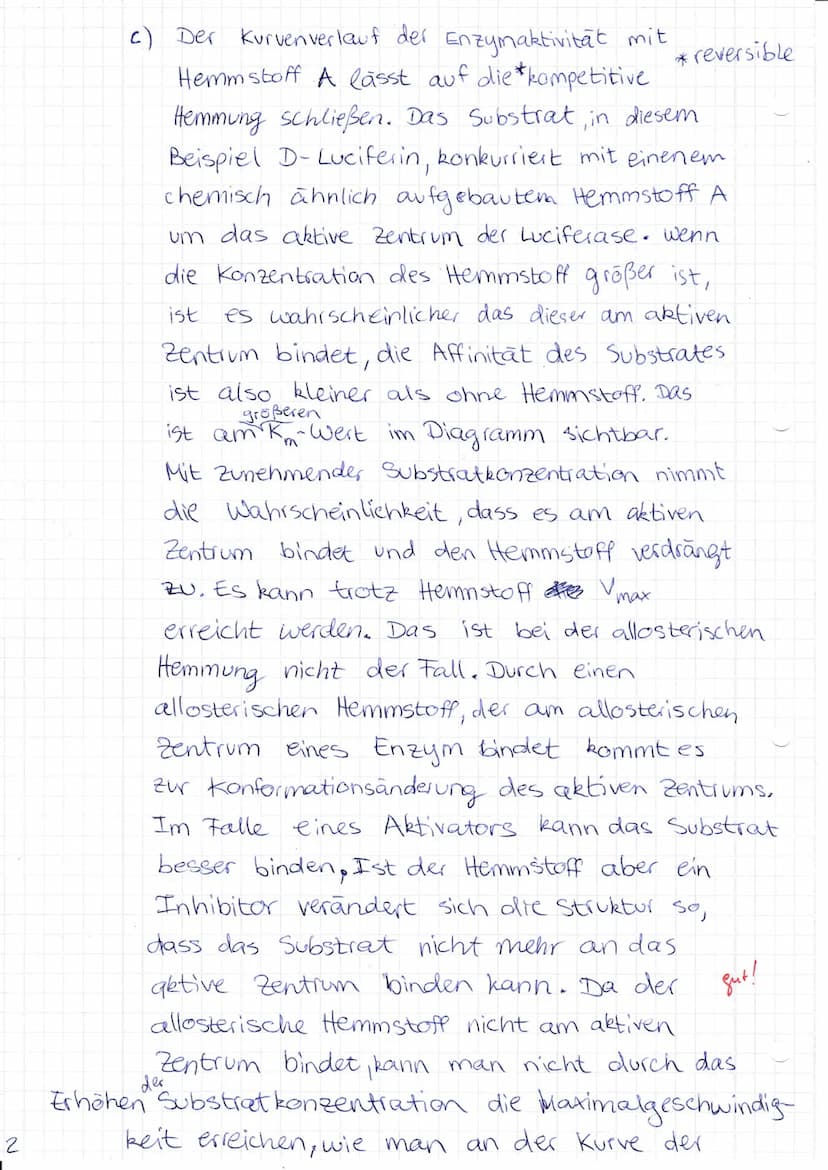 c) Der Kurvenverlauf der Enzymaktivität mit
*reversible
Hemmstoff A lässt auf die*kompetitive
Hemmung schließen. Das Substrat, in diesem
Beispiel D-Luciferin, konkurriert mit einenem
chemisch ähnlich aufgebautem Hemmstoff A
um das aktive Zentrum der Luciferase. Wenn
die Konzentration des Hemmstoff größer ist,
ist es wahrscheinlicher das dieser am aktiven
Zentrum bindet, die Affinität des Substrates
ist also kleiner als ohne Hemmstoff. Das
größeren
ist am Km-Wert im Diagramm sichtbar.
Mit zunehmender Substratkonzentration nimmt
die Wahrscheinlichkeit, dass es am aktiven
Zentrum bindet und den Hemmstoff verdrängt
zu. Es kann trotz Hemmstoff Vmax
erreicht werden. Das ist bei der allosterischen
Hemmung nicht der Fall. Durch einen
allosterischen Hemmstoff, der am allosterischen
Zentrum eines Enzym bindet kommt es
zur Konformationsänderung des aktiven Zentrums.
Im Falle eines Aktivators kann das Substrat
besser binden. Ist der Hemmstoff aber ein
Inhibitor verändert sich die Struktur so,
dass das Substrat nicht mehr an das
aktive Zentrum binden kann. Da der
gut!
allosterische Hemmstoff nicht am aktiven
Zentrum bindet, kann man nicht durch das
der
Erhöhen Substratkonzentration die Maximalgeschwindig-
2 keit erreichen, wie man an der Kurve der